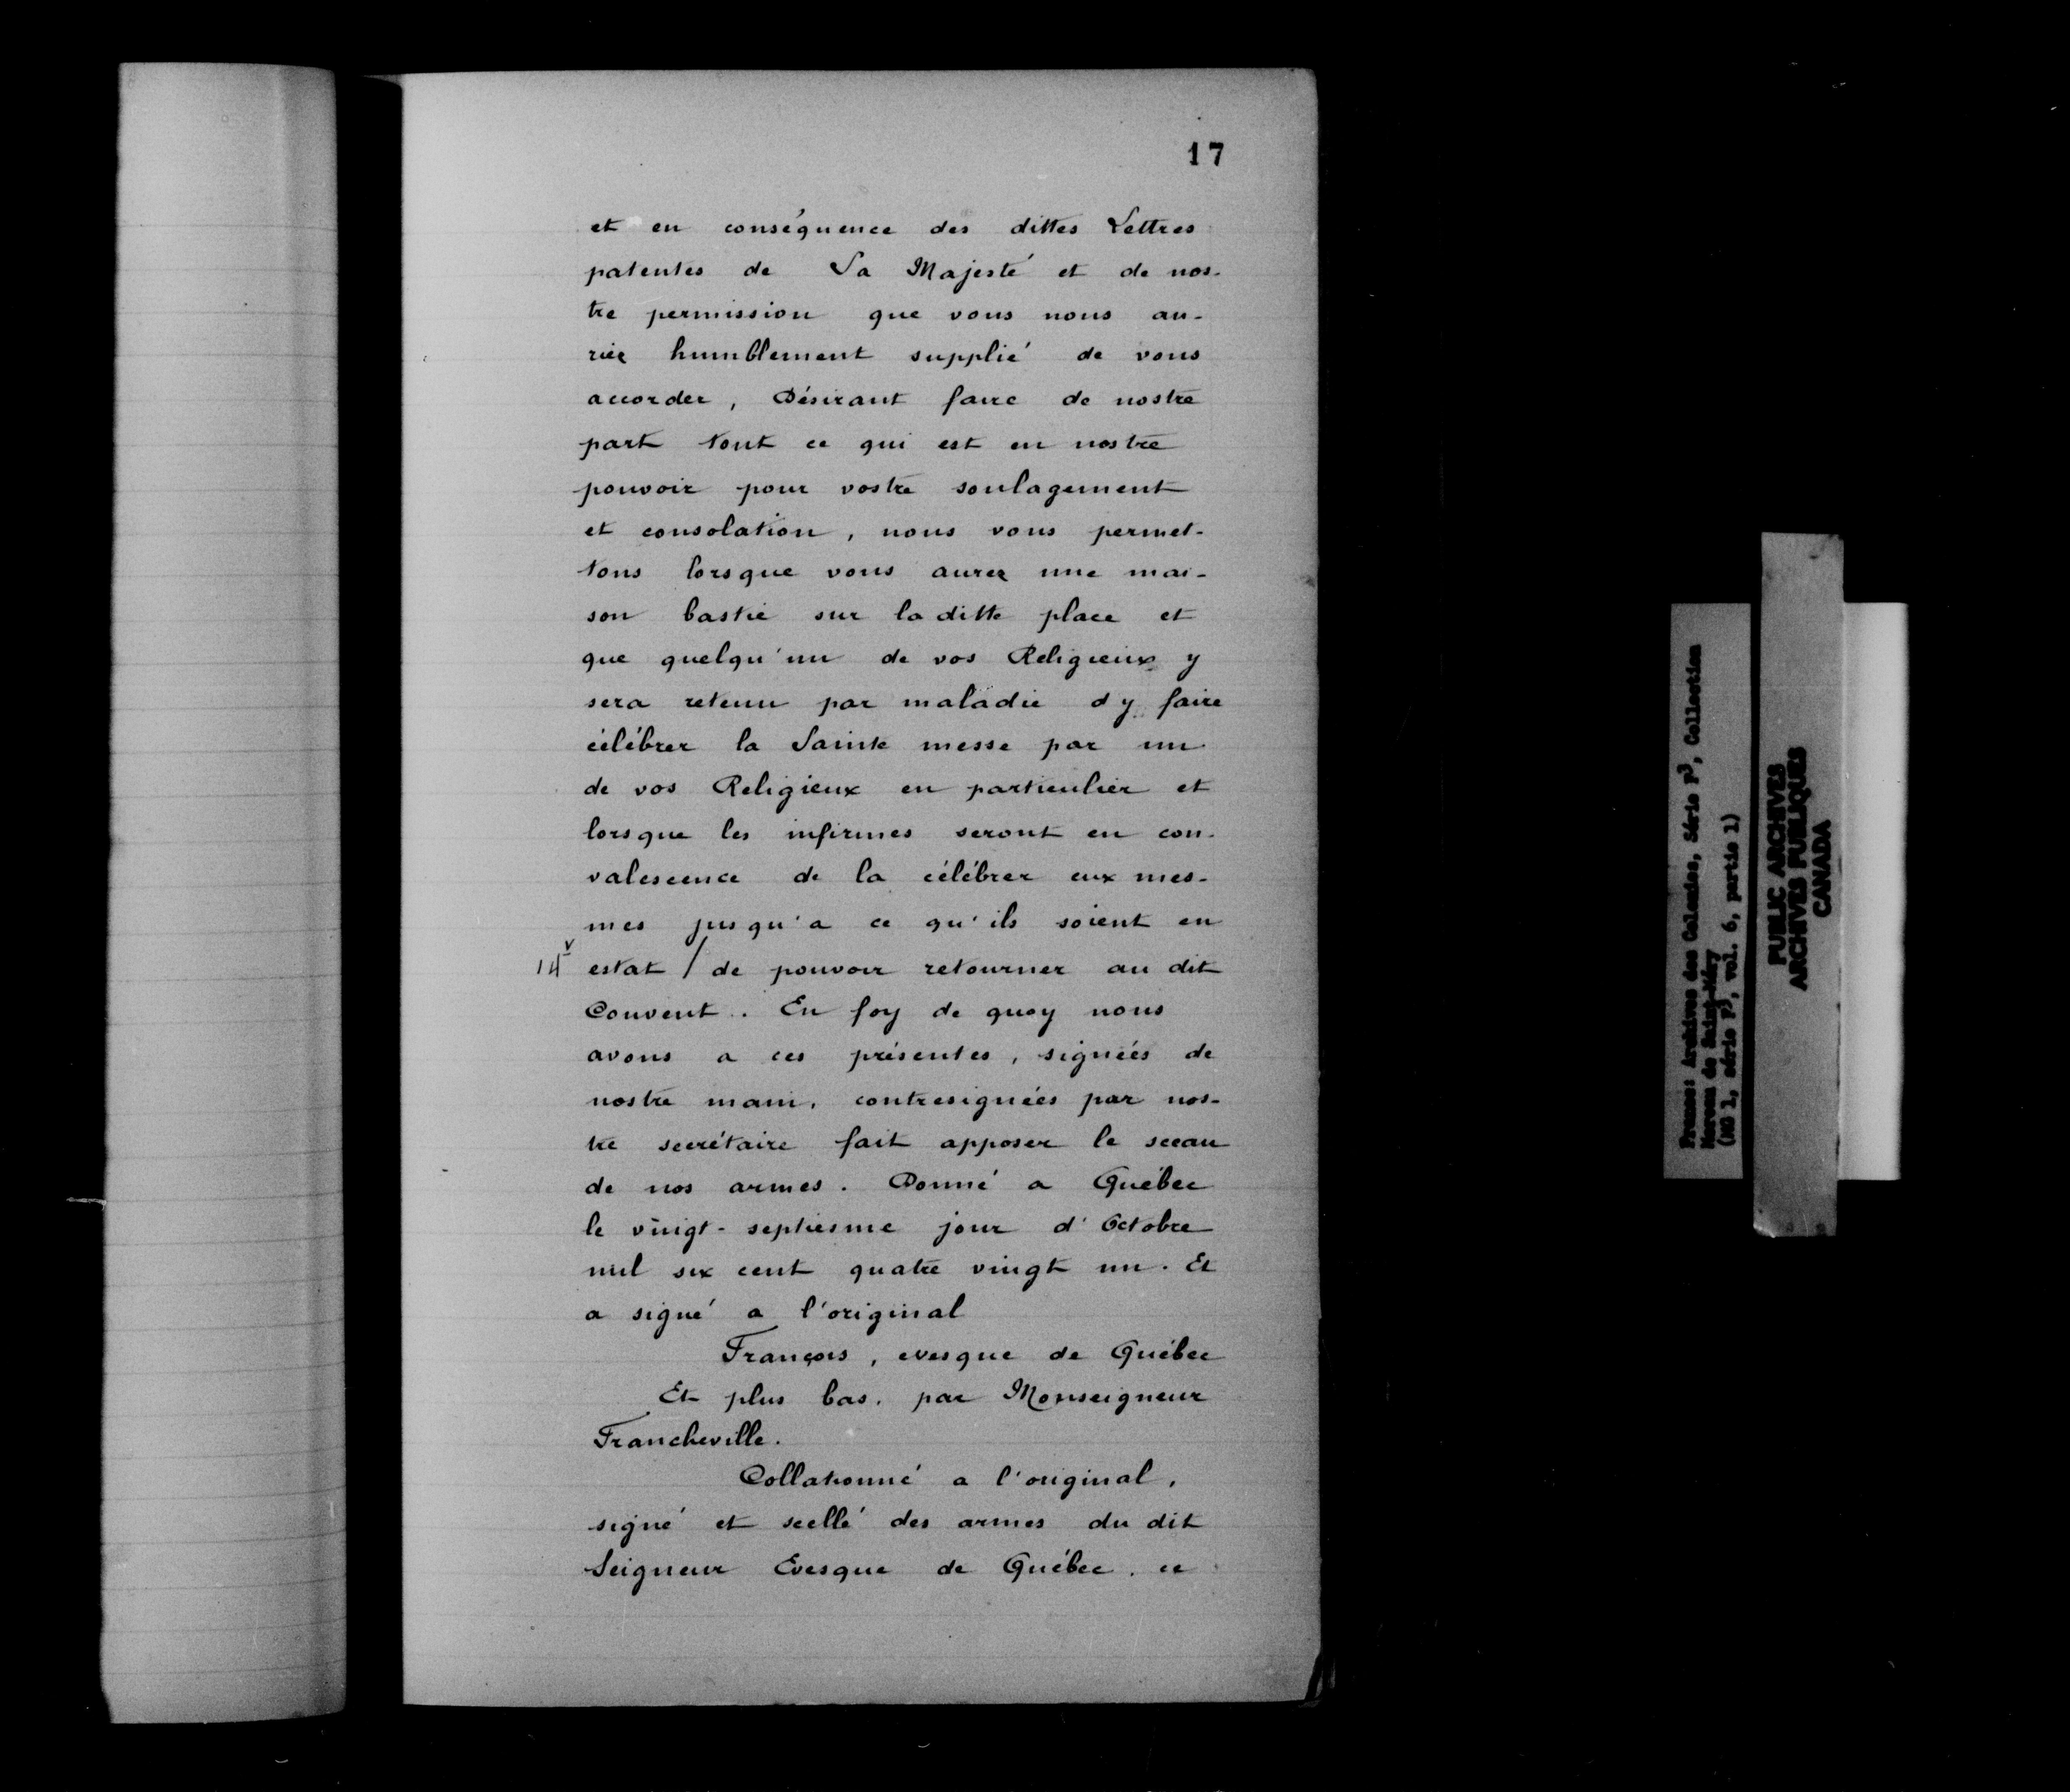 17
et en conséquence des dittes Lettres
patentes de Sa Majesté et de nos-
tre permission que vous nous au-
riez humblement supplié de vous
accorder, Désirant faire de nostre
part tout ce qui est en nostre
pouvoir pour vostre soulagement
et consolation, nous vous permet-
tons lorsque vous aurez une mai-
son bastie sur la ditte place et
que quelqu'un de vos Religieux y
sera retenu par maladie d'y faire
célébrer la Sainte messe par un
de vos Religieux en particulier et
lorsque les infirmes seront en con-
valescence de la célébrer eux mes-
mes jusqu'a ce qu'ils soient en
14v estat / de pouvoir retourner au dit
Couvent. En foy de quoy nous
avons a ces présentes, signées de
nostre main, contresignées par nos-
tre secrétaire fait apposer le sceau
de nos armes. Donné a Québec
le vingt-septiesme jour d'Octobre
mil six cent quatre vingt un. Et
a signé a l'original
François, evesque de Québec
Et plus bas, par Monseigneur
Francheville.
Collationné a l'original,
signé et scellé des armes du dit
Seigneur Evesque de Québec, ce
France: Archives des Colonies, Série F3, Collection
Moreau de Saint-Méry
(MG 1, série F3, vol. 6, partie 1)
PUBLIC ARCHIVES
ARCHIVES PUBLIQUES
CANADA